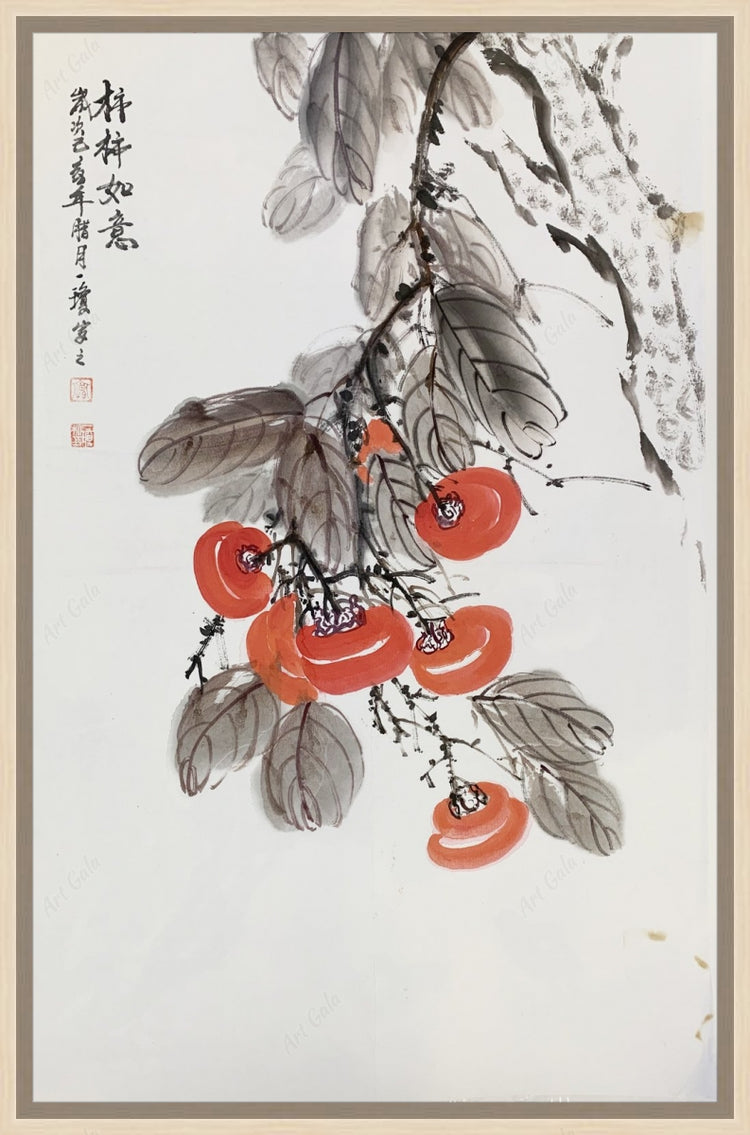 柿柿如意
岁次己亥年腊月一琼写之
Art Gala
Art Gala
Art Gala
Art Gala
Art Gala
Art Gala
Art Gala
Art Gala